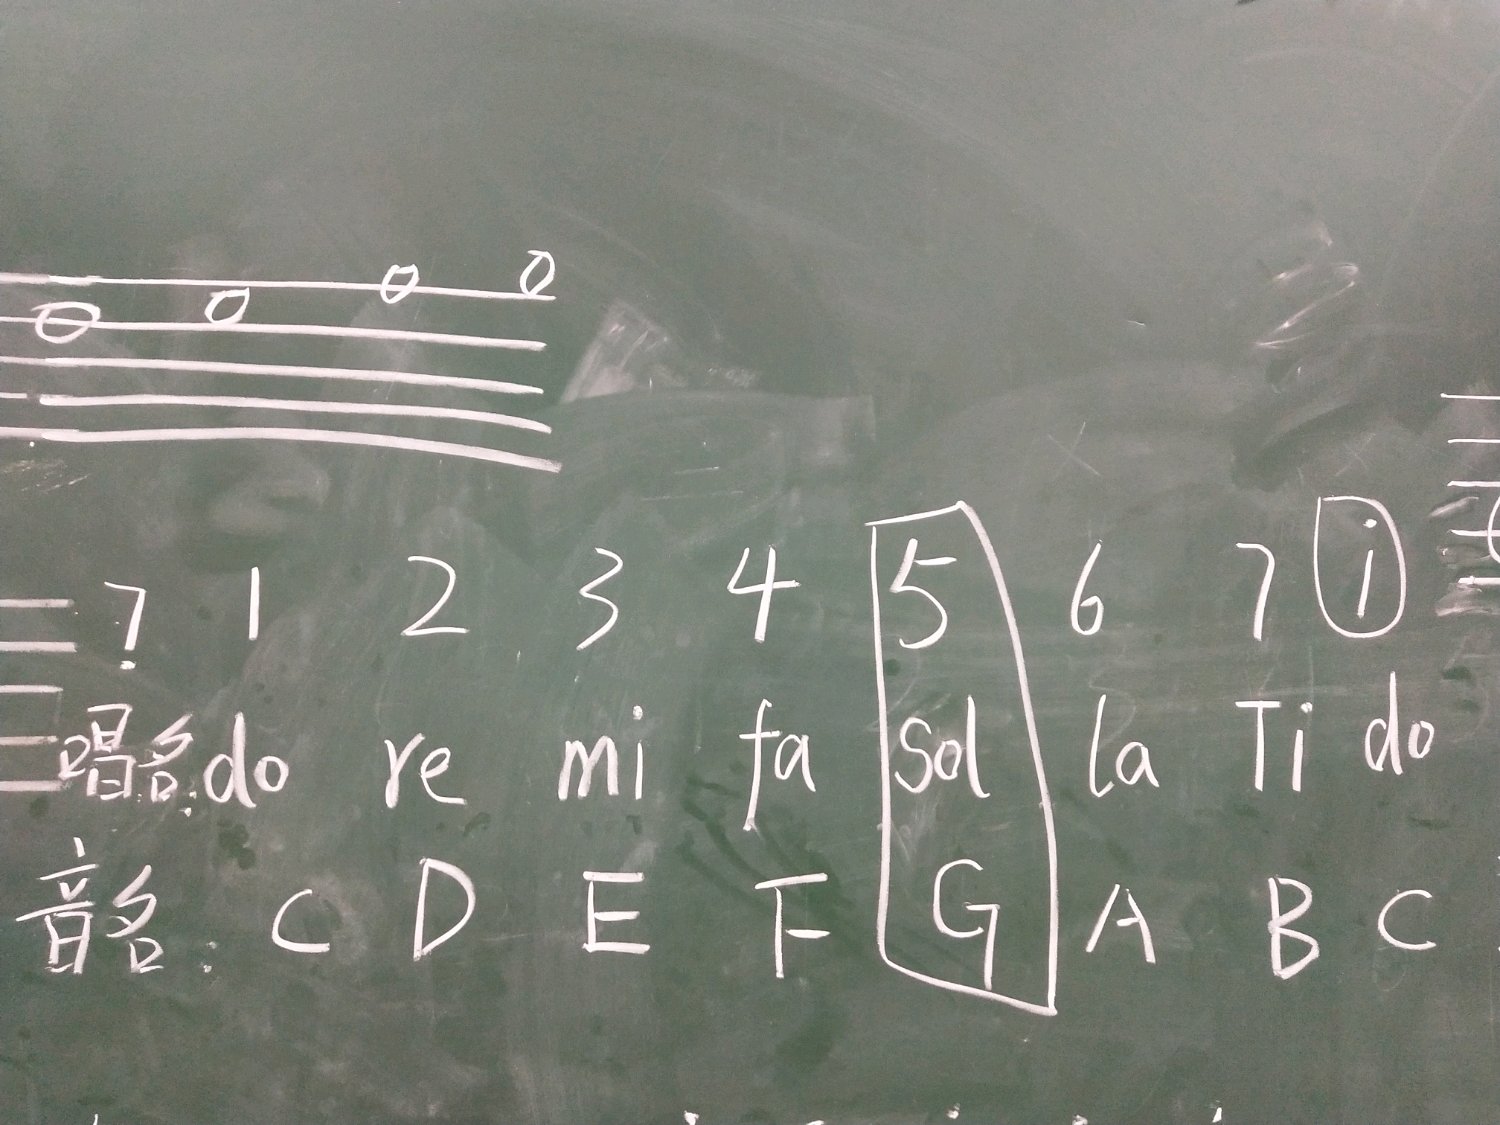 7̣ 1 2 3 4 5 6 7 i
唱名: do re mi fa Sol la Ti do
音名: C D E F G A B C